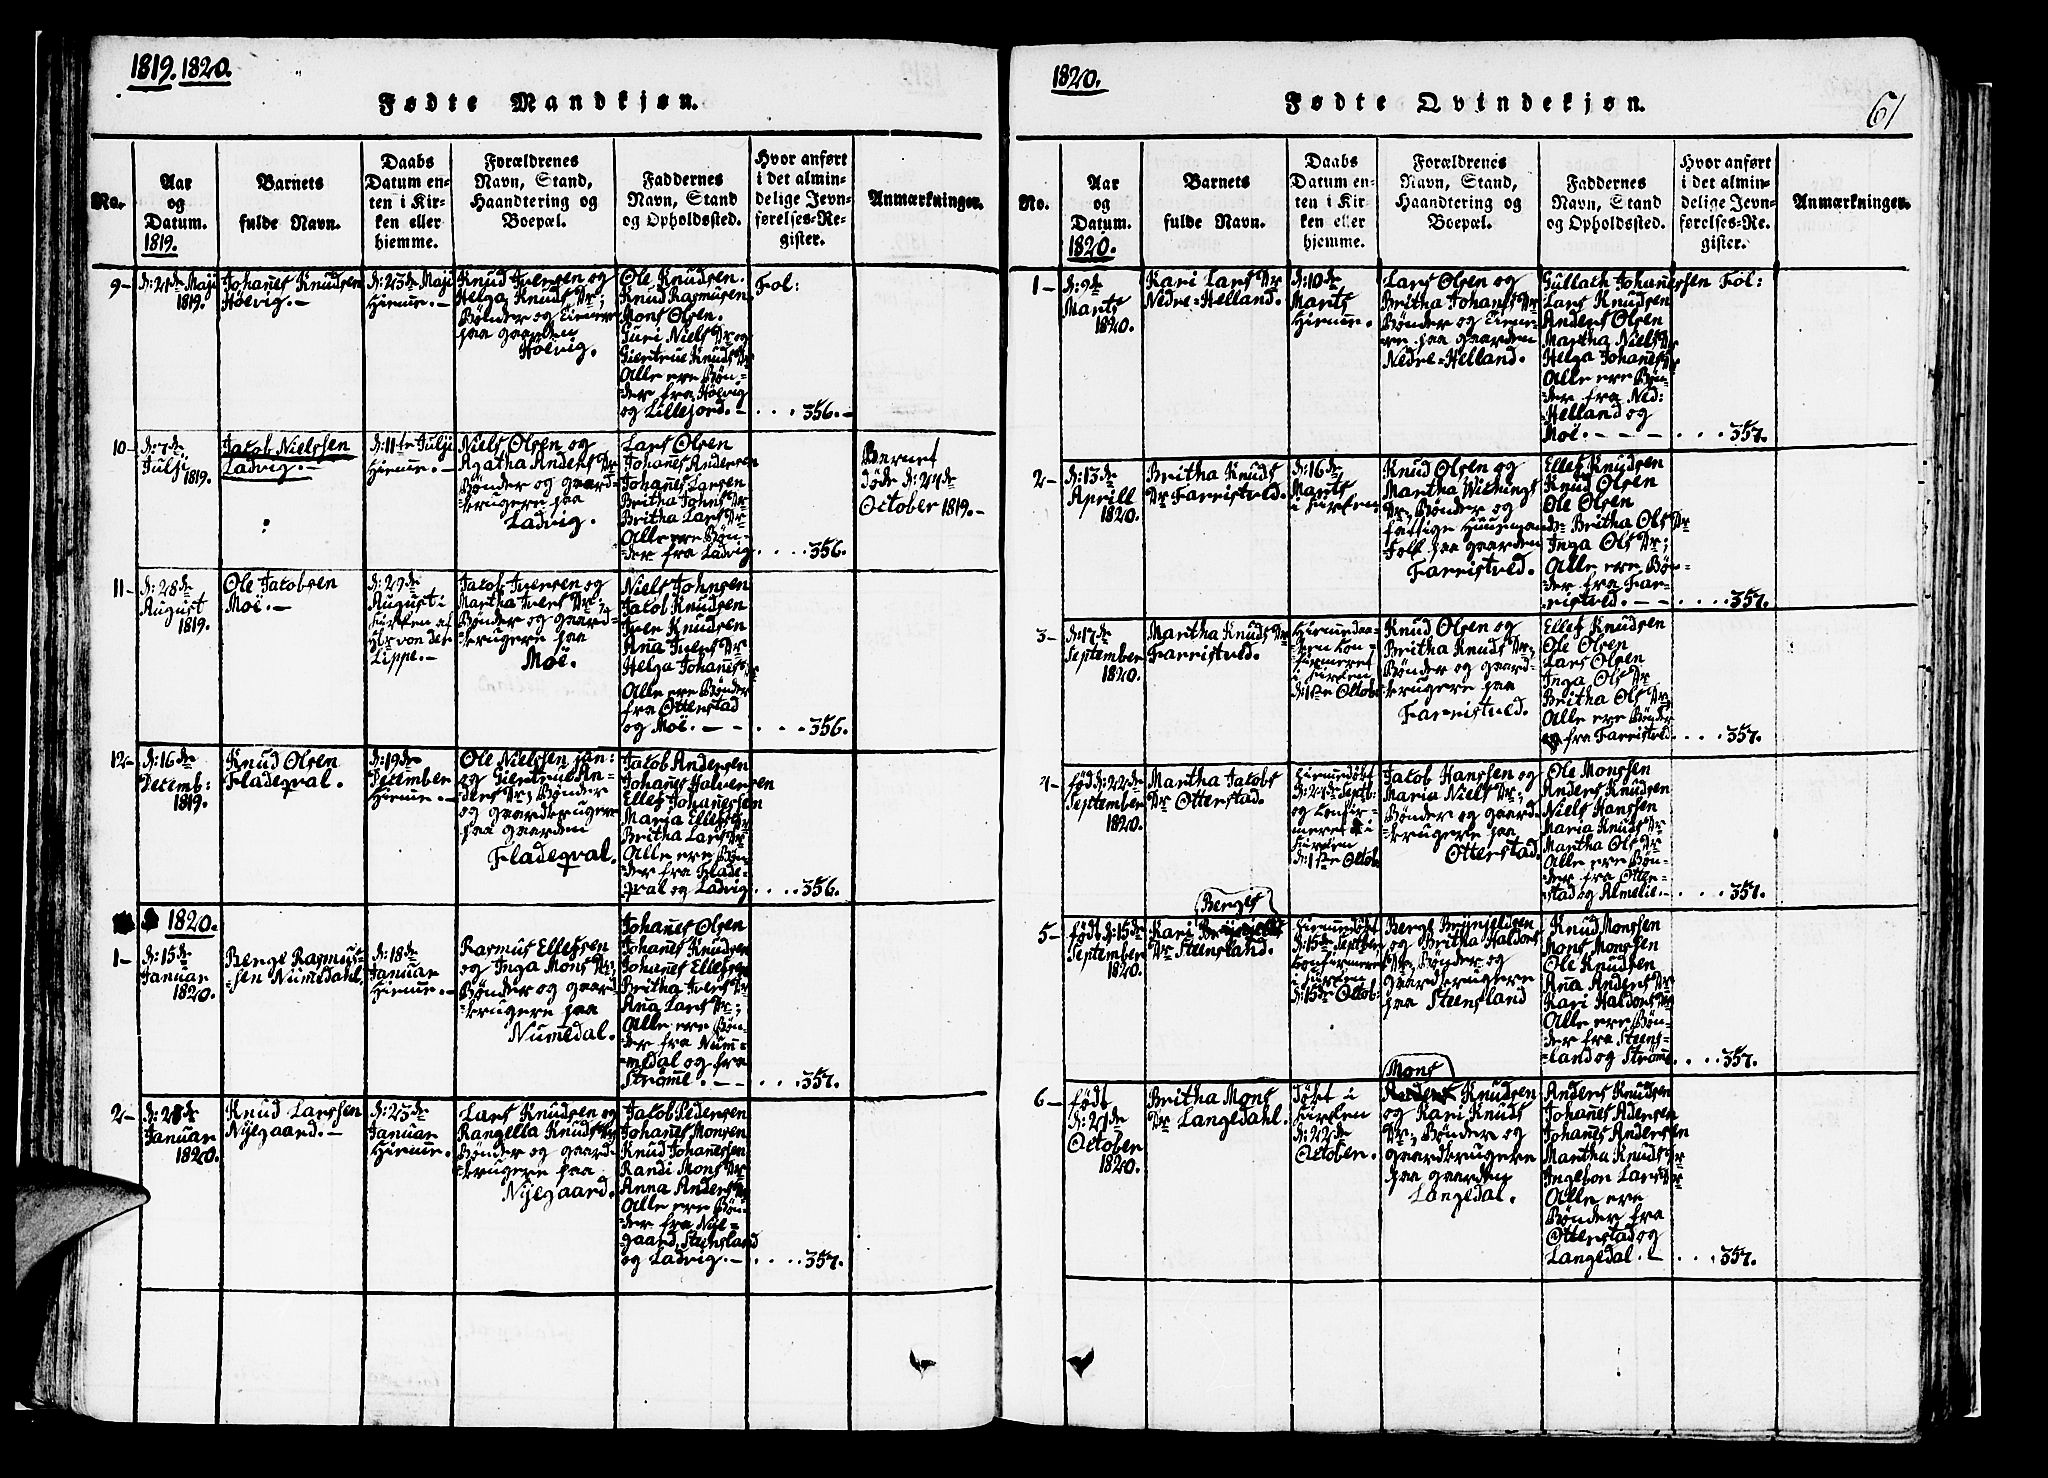 1819. 1820.
Fødte Mandkjøn.
No.
Aar
og
Datum.
1819.
Barnets
fulde Navn.
Daabs
Datum en-
ten i Kir-
ken eller
hjemme.
Forældrenes
Navn, Stand,
Haandtering og
Boepæl.
Faddernes
Navn, Stand
og Opholdssted.
Hvor anført
i det almin-
delige Jevn-
førelses-Re-
gister.
Anmærkninger.
9-
Maji
1819.
Johanes Knudsen
Hølvig.-
d: 23de Maji
Hiemme.-
Knud Iversen og
Helga Knuds Dr;
Bønder og Eiere
paa gaarden
Hølvig.
Ole Knudsen.
Knud Rasmusen
Mons Olsen.
Guri Niels Dr og
Giertrue Knuds Dr
Alle ere Bøn-
der fra Hølvig
og Lillejord.-
Fol:
. . . 356.-
10-
d: 7de
Julji
1819.
Jacob Nielssen
Ladvig.-
d: 11te Julji
Hiemme.-
Niels Olsen og
Agatha Anders Dr
Bønder og gaard-
brugere paa
Ladvig.
Lars Olsen
Johanes Andersen
Johanes Larsen
Britha Johns Dr
Britha Lars Dr
Alle ere Bøn-
der fra Ladvig.
. . . 356.
Barnet
døde d: 24de
October 1819.-
11-
d: 28de
August
1819.
Ole Jacobsen
Moe.-
d: 29de
August i
Kirken af
Hr von der
Lippe.-
Jacob Iversen og
Martha Ivers Dr;
Bønder og gaard-
brugere paa
Moe.
Niels Johnsen
Jacob Knudsen
Iver Knudsen
Ana Ivers Dr
Helga Johanes Dr
Alle ere Bønder
fra Otterstad
og Moe.-
. . . 356.
12-
d: 16de
Decemb:
1819.
Knud Olsen
Fladeqval.
d: 19de
December
Hiemme.-
Ole Nielssen
og Giertrue An-
ders Dr; Bønder
og gaardbrugere
paa gaarden
Fladeqval.
Jacob Andersen
Johanes Halvorsen
Ellef Johanessen
Maria Ellefs Dr
Britha Lars Dr
Alle ere Bøn-
der fra Flade-
qval og Ladvig
. . . 356.
1820.
1-
d: 15de
Januar
1820.
Berge Rasmus-
sen Numedahl.
d: 18de
Januar
Hiemme.-
Rasmus Ellefsen
og Inga Mons Dr;
Bønder og gaard-
brugere paa
Numedal.
Johanes Olsen
Johanes Knudsen
Johanes Ellefsen
Britha Ivers Dr
Ana Lars Dr;
Alle ere Bøn-
der fra Num-
medal og fra
Strømme.-
. . . 357.
2-
Januar
1820.
Knud Larssen
Nyegaard.-
d: 23de
Januar
Hiemme.-
Lars Knudsen og
Rangella Knuds Dr
Bønder og gaard-
brugere paa
Nyegaard.
Jacob Pedersen
Johanes Monsen
Knud Johanessen
Randi Mons Dr
Anna Anders Dr
Alle ere Bøn-
der fra Nye-
gaard, Steensland
og Ladvig.-
. . . 357.
1820.
Fødte Qvindekjøn.
61
No.
Aar
og
Datum.
1820.
Barnets
fulde Navn.
Daabs
Datum en-
ten i Kir-
ken eller
hjemme.
Forældrenes
Navn, Stand,
Haandtering og
Boepæl.
Faddernes
Navn, Stand
og Opholdssted.
Hvor anført
i det almin-
delige Jevn-
førelses-Re-
gister.
Anmærkninger.
1-
d: 9de
Marts
1820.
Kari Lars Dr
Nedre-Helland.
d: 10de
Marts
Hiemme.-
Lars Olsen og
Britha Johans Dr
Bønder og Eiere-
re paa gaarden
Nedre-Helland.
Gullach Johanesen
Lars Knudsen
Anders Olsen
Martha Niels Dr
Helga Johanes Dr
Alle ere Bøn-
der fra Ned:
Helland og
Moe.-
Fol:
. . . 357.
2-
d: 13de
Aprill
1820.
Britha Knuds
Dr Farristved.
d: 16de
Marts
i Kirken
Knud Olsen og
Martha
Dr; Bønder og
fattige Huusmands-
Folk paa gaarden
Farristved.
Ellef Knudsen
Knud Olsen
Ole Olsen
Britha Ols Dr
Inga Ols Dr;
Alle ere Bøn-
der fra Far-
ristved.-
. . . 357.
3-
d: 17de
September
1820.
Martha Knuds Dr
Farristved.
Hiemmedaa-
ben Con-
firmeret
i Kirken
d: 1ste Octob:
Knud Olsen og
Britha Knuds Dr;
Bønder og gaard-
brugere paa
Farristved.
Ellef Knudsen
Ole Olsen
Lars Olsen
Inga Ols Dr
Britha Ols Dr
Alle ere Bønder
fra Farristved
. . . 357.
4-
fød d: 22de
September
1820.
Martha Jacobs
Dr Otterstad.
Hiemmedøbt
d: 24de Septb:
og Confir-
meret i
Kirken
d: 1ste Octob.
Jacob Hanssen og
Maria Niels Dr;
Bønder og gaard-
brugere paa
Otterstad.
Ole Monssen
Anders Knudsen
Niels Hanssen
Maria Knuds Dr
Martha Ols Dr
Alle ere Bøn-
der fra Otter-
stad og Almelie.-
. . . 357.
5-
født d: 15de
September
1820.
Berges
Kari
Dr Steensland.
Hiemmedøbt
d: 15de Septber
Confirmeret
i Kirken
d: 15de Octob:
Berge Brynjeldsen
og Britha Haldors
Dr; Bønder og
gaardbrugere
paa Steensland
Knud Monssen
Mons Monssen
Ole Knudsen
Ana Anders Dr
Kari Haldors Dr
Alle ere Bøn-
der fra Steens-
land og Strømme.
. . . 357.
6-
født
October
1820.
Britha Mons
Dr Langedahl.
Døbt i
Kirken
d: 22de
October.
Mons
Anders Knudsen
og Kari Knuds
Dr; Bønder og
gaardbrugere
paa gaarden
Langedal.
Anders Knudsen
Johanes Adersen
Johanes Andersen
Martha Knuds Dr
Ingebor Lars Dr
Alle ere
Bønder fra
Otterstad og
Langedal.-
. . . 357.